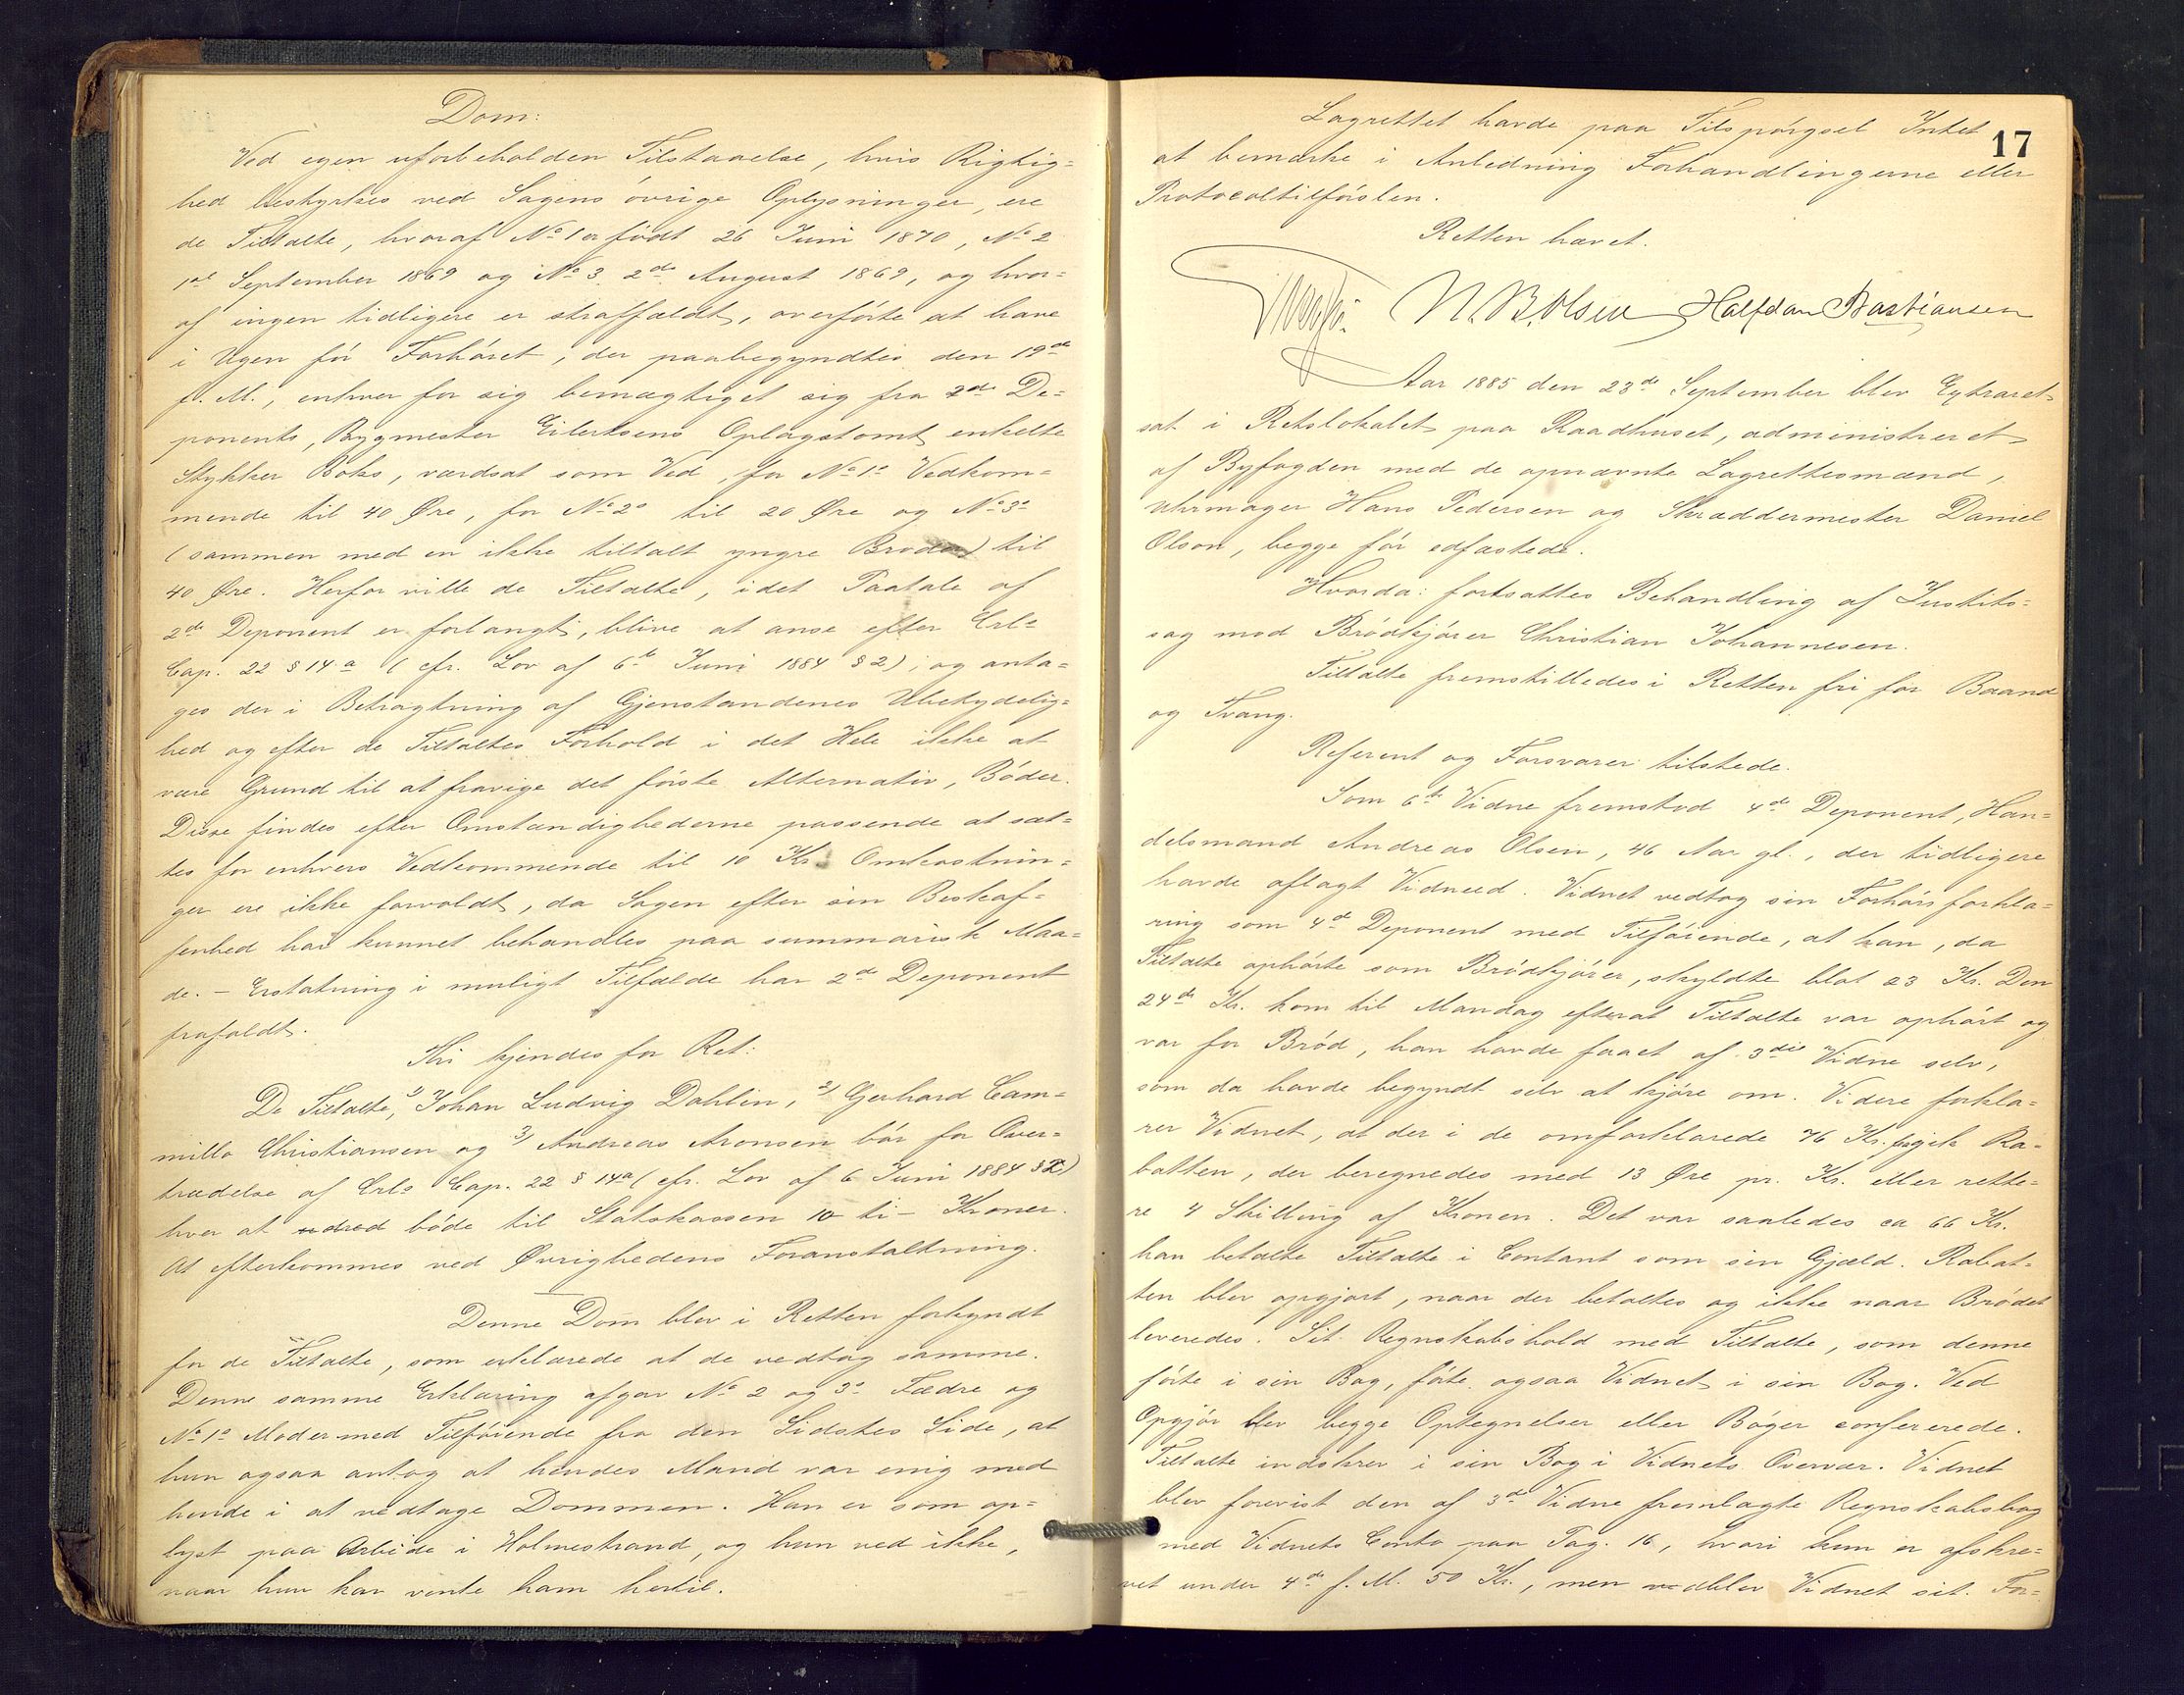 Dom:
Ved egen uforbeholden Tilstaaelse, hvis Rigtig=
hed bestyrkes ved Sagens øvrige Oplysninger, ere
de Tiltalte, hvoraf No 1 er født 26 Juni 1870, No 2
1ste September 1869 og No 3. 2den August 1869, og hvor=
af ingen tidligere er straffældt, overførte at have
i Ugen før Forhøret, der paabegyndtes den 19de
f. M., enhver for sig bemægtiget sig fra 2den De=
ponents, Bygmester Eilertsens Oplagstomt enkelte
Stykker Boks, værdsat som Ved, for No 1s Vedkom=
mende til 40 Øre, for No 2s til 20 Øre og No 3s
(sammen med en ikke tiltalt yngre Broder) til
40 Øre. Herfor ville de Tiltalte, idet Paatale af
2den Deponent er forlangt, blive at anse efter Crls
Cap. 22 § 14 a (cfr. Lov af 6te Juni 1884 § 2); og anta=
ges der i Betragtning af Gjenstandenes Ubetydelig=
hed og efter de Tiltaltes Forhold i det Hele ikke at
være Grund til at fravige det første Alternativ, Bøder.
Disse findes efter Omstændighederne passende at sæt=
tes for enhvers Vedkommende til 10 Kr. Omkostnin=
ger ere ikke forvoldt, da Sagen efter sin Beskaf=
fenhed har kunnet behandles paa summarisk Maa=
de. – Erstatning i muligt Tilfælde har 2den Deponent
frafaldt.
Thi kjendes for Ret:
De Tiltalte, 1) Johan Ludvig Dahlin, 2) Gerhard Cam=
millo Christiansen og 3) Andreas Aronsen bør for Over=
trædelse af Crls Cap. 22 § 14a (cfr. Lov af 6 Juni 1884 § 2)
hver at bøde til Statskassen 10 ti – Kroner.
At efterkommes ved Øvrighedens Foranstaltning.
Denne Dom blev i Retten forkyndt
for de Tiltalte, som erklærede at de vedtog samme.
Denne samme Erklæring afgav No 2 og 3s Fædre og
No 1s Moder med Tilføiende fra den Sidstes Side, at
hun ogsaa antog at hendes Mand var enig med
hende i at vedtage Dommen. Han er som op=
lyst paa Arbeide i Holmestrand, og hun ved ikke,
naar hun kan vente ham hertil.
17
Lagrettet havde paa Tilspørgsel Intet
at bemærke i Anledning Forhandlingerne eller
Protocoltilførslen.
Retten hævet.
N. B. Olsen Halfdan Bastiansen
Aar 1885 den 23de September blev Extraret
sat i Retslokalet paa Raadhuset, administreret
af Byfogden med de opnævnte Lagrettesmænd,
Uhrmager Hans Pedersen og Skræddermester Daniel
Olson, begge før edfæstede.
Hvorda: fortsattes Behandling af Justits=
sag mod Brødkjører Christian Johannesen.
Tiltalte fremstilledes i Retten fri for Baand
og Tvang.
Referent og Forsvarer tilstede.
Som 6te Vidne fremstod 4de Deponent, Han=
delsmand Andreas Olsen, 46 Aar gl., der tidligere
havde aflagt Vidneed. Vidnet vedtog sin Forhørsforkla=
ring som 4de Deponent med Tilføiende, at han, da
Tiltalte ophørte som Brødkjører, skyldte blot 23 Kr. Den
24de Kr. kom til Mandag efterat Tiltalte var ophørt og
var for Brød, han havde faaet af 3die Vidne selv,
som da havde begyndt selv at kjøre om. Videre forkla=
rer Vidnet, at der i de omforklarede 76 Kr. fragik Ra=
batten, der beregnedes med 13 Øre pr. Kr. eller rette=
re 4 Skilling af Kronen. Det var saaledes ca 66 Kr.
han betalte Tiltalte i Contant som sin Gjæld. Rabat=
ten blev opgjort, naar der betaltes og ikke naar Brødet
leveredes. Sit Regnskabshold med Tiltalte, som denne
førte i sin Bog, førte ogsaa Vidnet i sin Bog. Ved
Opgjør blev begge Optegnelser eller Bøger confererede.
Tiltalte indskrev i sin Bog i Vidnets Overvær. Vidnet
blev forevist den af 3de Vidne fremlagte Regnskabsbog
med Vidnets Conto paa Pag. 16, hvori kun er afskre=
vet under 4de f. M. 50 Kr., men vedblev Vidnet sit For=